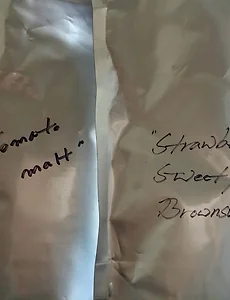 omato
matt"
"Strawb
Sweet
Browns